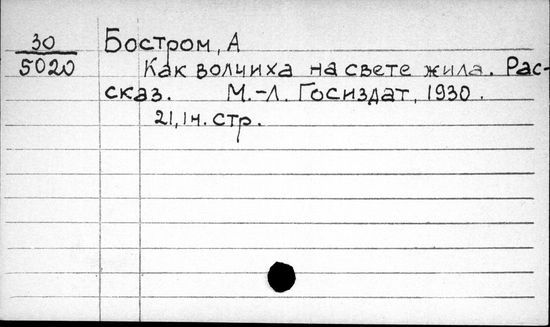 30
5020
Бостром, А
Как волчиха на свете жила. Рас-
сказ. М.-Л. Госиздат, 1930.
21, 1 н. стр.